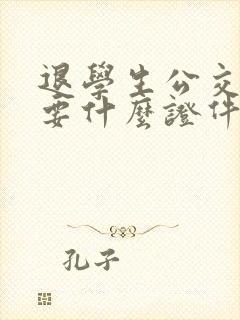 退學生公交
要什麼證件
孔子